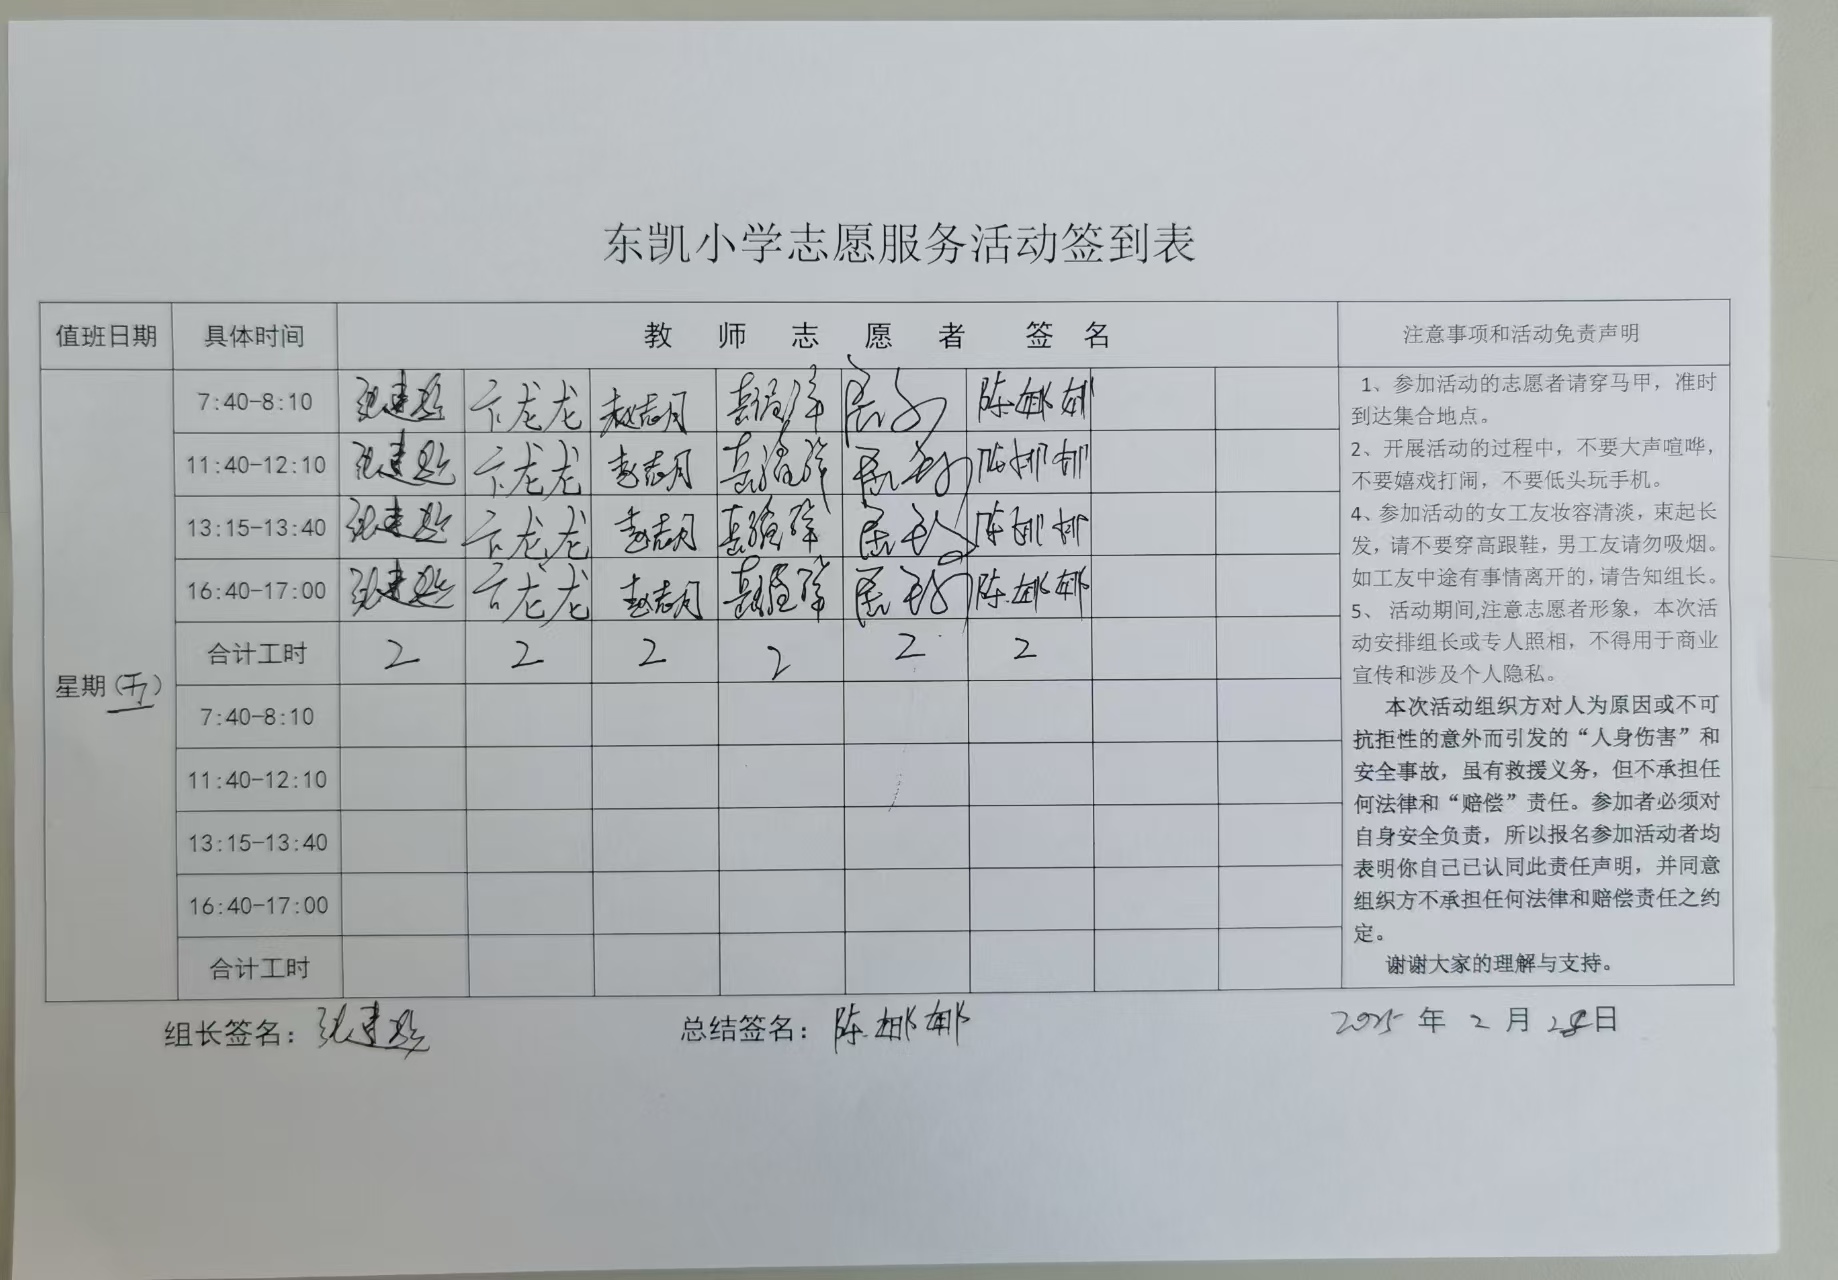 东凯小学志愿服务活动签到表
值班日期 具体时间 教师志愿者签名 注意事项和活动免责声明
7:40-8:10 卞龙龙 赵志月 陈娜娜
11:40-12:10 卞龙龙 赵志月 陈娜娜
13:15-13:40 卞龙龙 赵志月 陈娜娜
16:40-17:00 卞龙龙 赵志月 陈娜娜
合计工时 2 2 2 2 2 2
星期(五)
7:40-8:10
11:40-12:10
13:15-13:40
16:40-17:00
合计工时
1、参加活动的志愿者请穿马甲，准时
到达集合地点。
2、开展活动的过程中，不要大声喧哗，
不要嬉戏打闹，不要低头玩手机。
4、参加活动的女工友妆容清淡，束起长
发，请不要穿高跟鞋，男工友请勿吸烟。
如工友中途有事情离开的，请告知组长。
5、 活动期间,注意志愿者形象，本次活
动安排组长或专人照相，不得用于商业
宣传和涉及个人隐私。
本次活动组织方对人为原因或不可
抗拒性的意外而引发的“人身伤害”和
安全事故，虽有救援义务，但不承担任
何法律和“赔偿”责任。参加者必须对
自身安全负责，所以报名参加活动者均
表明你自己已认同此责任声明，并同意
组织方不承担任何法律和赔偿责任之约
定。
谢谢大家的理解与支持。
组长签名： 总结签名：陈娜娜 2025年2月28日